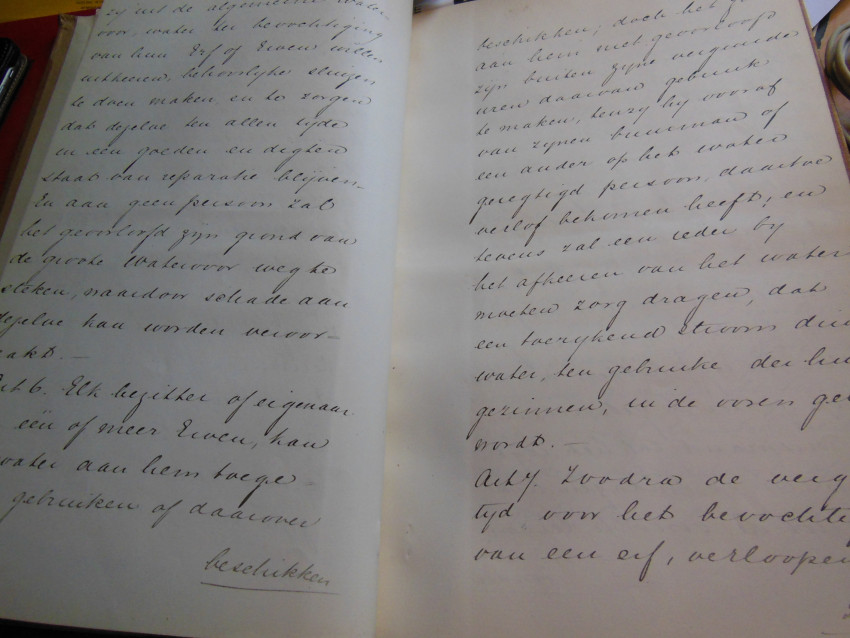 zij uit de algemeene water
voor, water ter bevochtiging
van hun Erf of Erven willen
uitkeeren, behoorlijke sluizen
te doen maken, en te zorgen
dat dezelve ten allen tijde
in een goeden en digten
staat van reparatie blijven.
En aan geen persoon zal
het geoorloofd zijn grond van
de groote Watervoor weg te
steken, waardoor schade aan
dezelve kan worden veroor-
zakt. —
Art 6. Elk bezitter of eigenaar
een of meer Erven, kan
water aan hem toege
gebruiken of daarover
beschikken
beschikken; doch het
aan hem niet geoorloofd
zijn buiten zijne vergunde
uren daarvan gebruik
te maken, tenzy hy vooraf
van zynen buurman of
een ander op het water
geregtigd persoon, daartoe
verlof bekomen heeft, en
tevens zal een ieder by
het afkeeren van het water
moeten zorg dragen, dat
een toerykend stroom
water, ten gebruike der
gezinnen, in de voren
wordt. —
Art 7. Zoodra de
tyd voor het
van een erf, verloopen